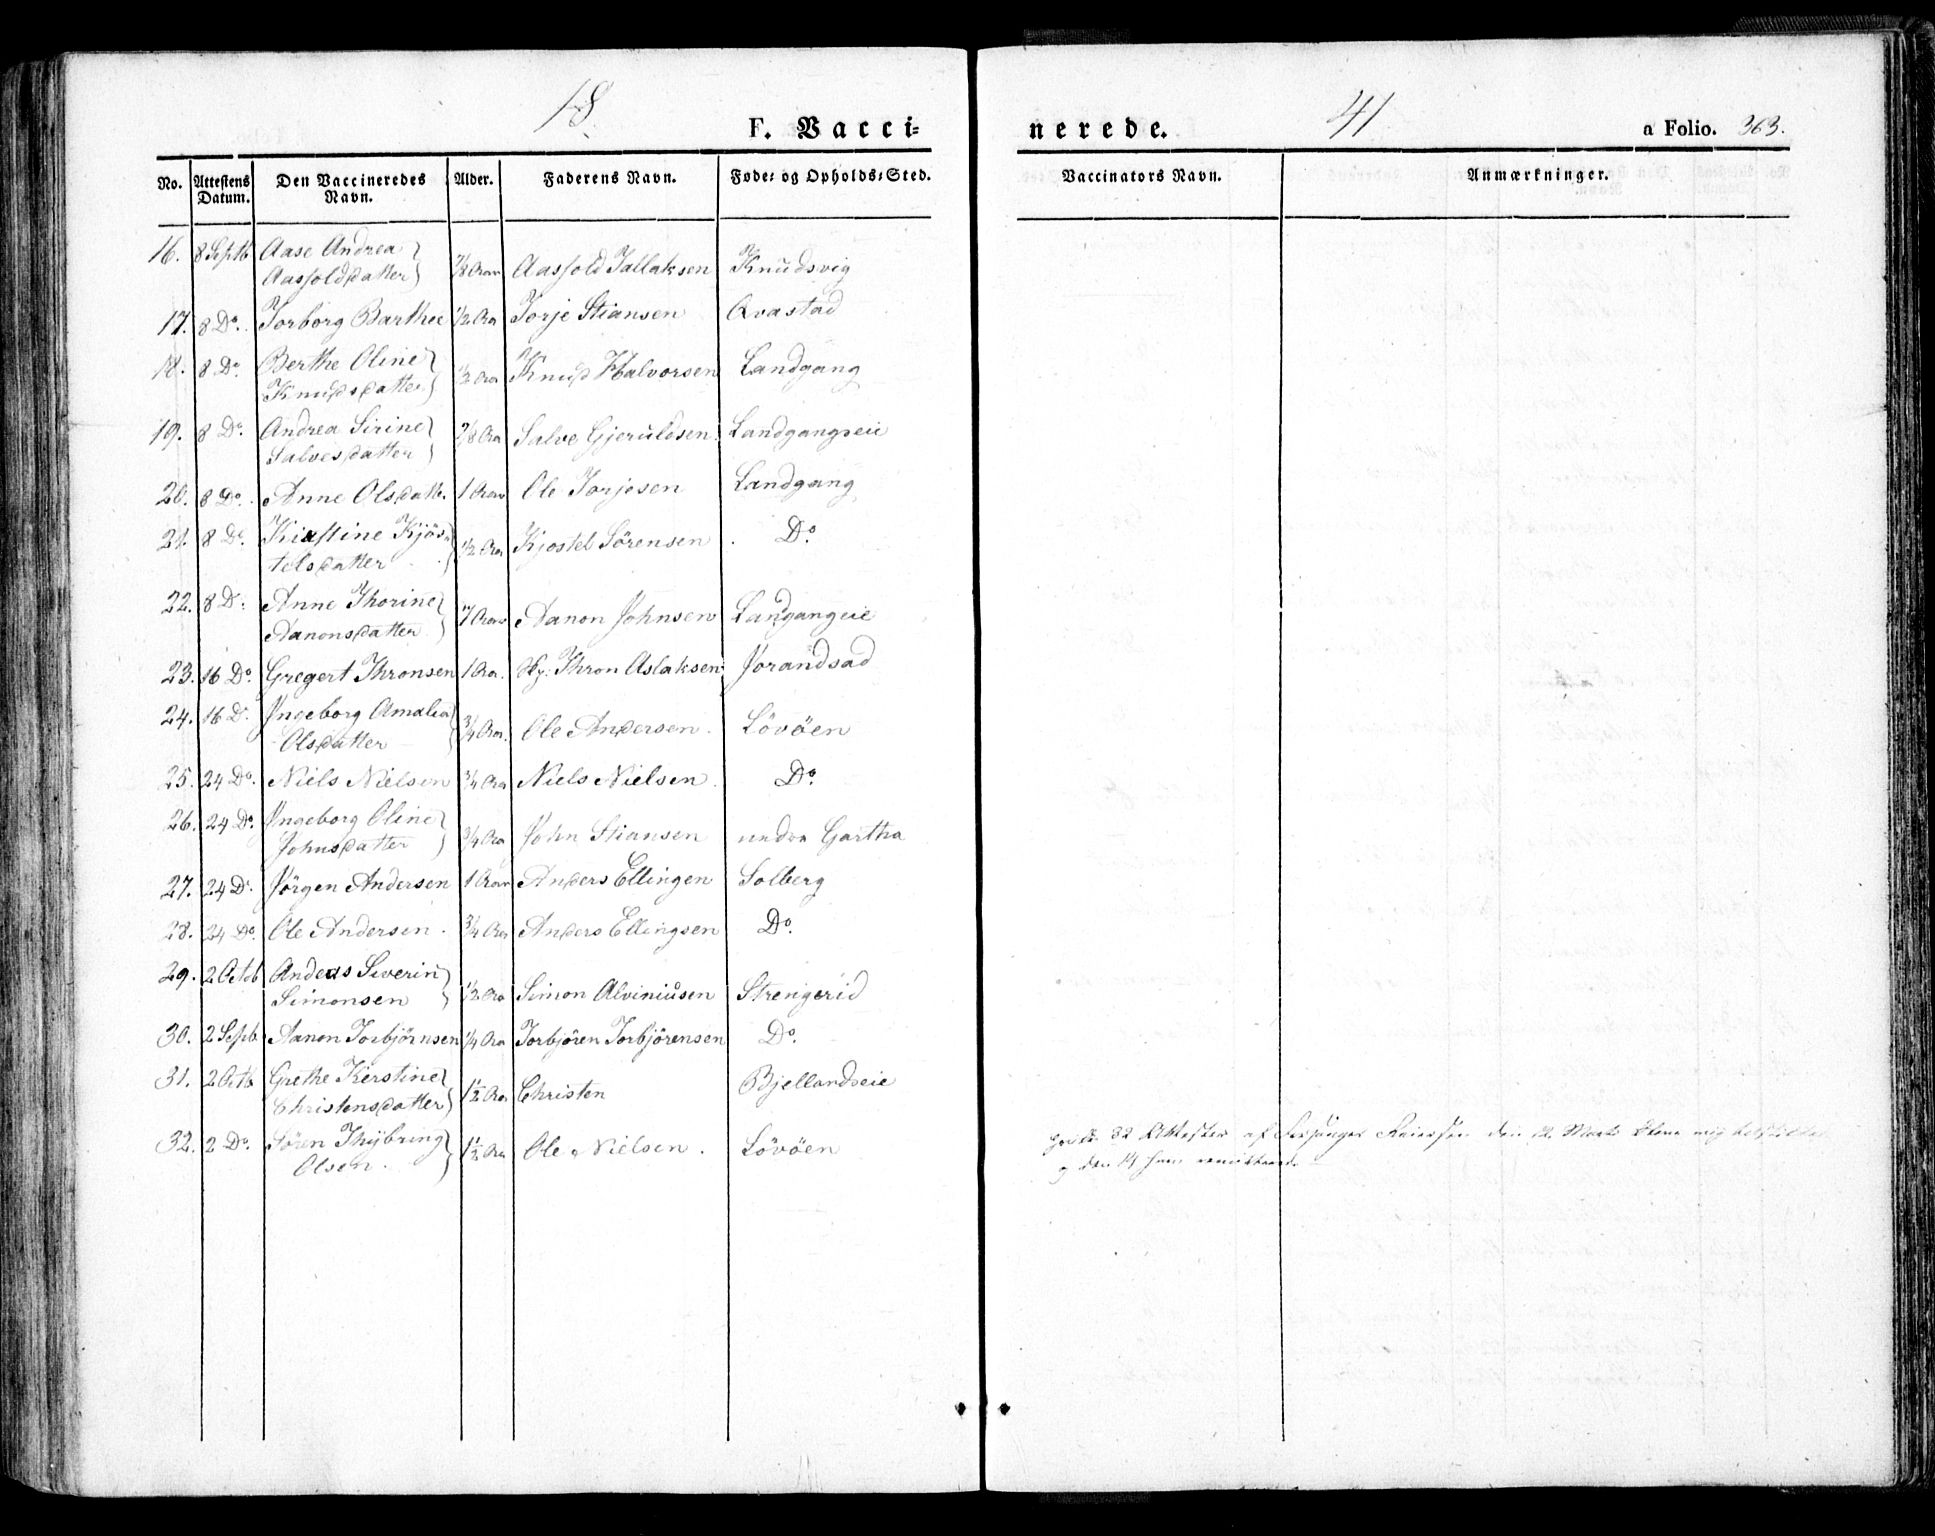 18 41
F. Vacci= nerede. a Folio. 363.
No. Attestens Datum. Den Vaccineredes Navn. Alder. Faderens Navn. Føde= og Opholds=Sted. Vaccinators Navn. Anmærkninger.
16. 8 Septb Aase Andrea Aasfoldsdatter 7/8 Aar Aasfold Tallaksen Knudsvig
17. 8 Do. Torborg Barthee 1/2 Aar Torje Stiansen Qvastad
18. 8 Do. Berthe Oline Knudsdatter 1/2 Aar Knud Halvorsen Landgang
19. 8 Do. Andrea Sirine Salvesdatter 7/8 Aar Salve Gjeruldsen Landgangseie
20. 8 Do. Anne Olsdatter 1 Aar Ole Torjesen Landgang
21. 8 Do. Kirstine Kjös=telsdatter 1/2 Aar Kjostel Sörensen Do.
22. 8 Do. Anne Thorine Aanonsdatter Aar Aanon Johnsen Landgangeie
23. 16 Do. Gregert Thronsen 1 Aar. Thron Aslaksen Jorandsad
24. 16 D. Ingeborg Amalia Olsdatter 3/4 Aar. Ole Andersen. Lövöen
25. 24 Do. Niels Nielsen 3/4 Aar Niels Nielsen. Do.
26. 24 Do. Ingeborg Oline Johnsdatter 3/4 Aar John Stiansen Gartha
27. 24 D. Jörgen Andersen 1 Aar Anders Ellingen Solberg
28. 24 Do. Ole Andersen. 3/4 Aar Anders Ellingsen Do.
29. 2 Octob Andeas Severin Simonsen 1/2 Aar Simon Alviniusen Strengerid
30. 2 Septb Aanon Torbjörnsen 1/4 Aar Torbjören Torbjörensen Do.
31. 2 Octb Grethe Kirstine Christensdatter 1 1/2 Aar Christen Bjellandseie
32. 2 Do. Sören Thybring Olsen. 1 1/2 Aar Ole Nielsen. Lövöen
32 Attester af den 12 Marts mig
den 14